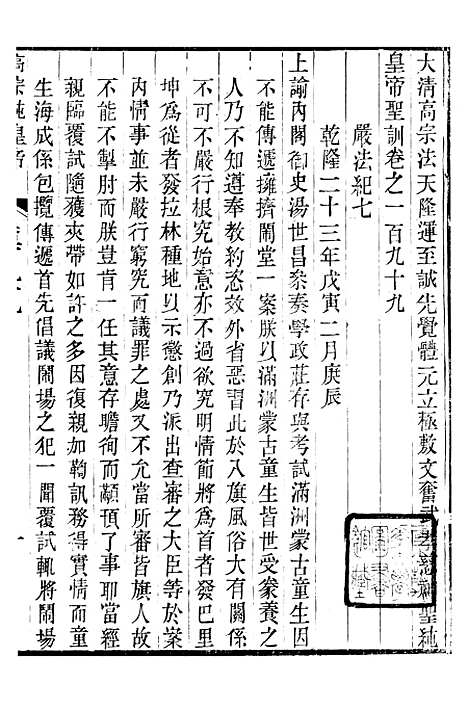 大清高宗法天隆運至誠先覺體元立極敷文奮武孝慈神聖純
皇帝聖訓卷之一百九十九
嚴法紀七
乾隆二十三年戊寅二月庚辰
上諭內閣御史湯世昌叅奏學政莊存與考試滿洲蒙古童生因
不能傳遞擁擠鬧堂一案朕以滿洲蒙古童生皆世受豢養之
人乃不知遵奉教約恣效外省惡習此於八旗風俗大有關係
不可不嚴行根究然亦不過欲究明情節將爲首者發巴里
坤爲從者發拉林種地以示懲創乃派出查審之大臣等於案
內情事並未嚴行窮究而議罪之處又不允當所審皆旗人故
不能不掣肘而朕豈肯一任其意存瞻徇而顢頇了事耶當經
親臨覆試隨獲夾帶如許之多因復親加鞫訊務得實情而童
生海成係包攬傳遞首先倡議鬧場之犯一聞覆試輒將鬧場
高宗純皇帝
一